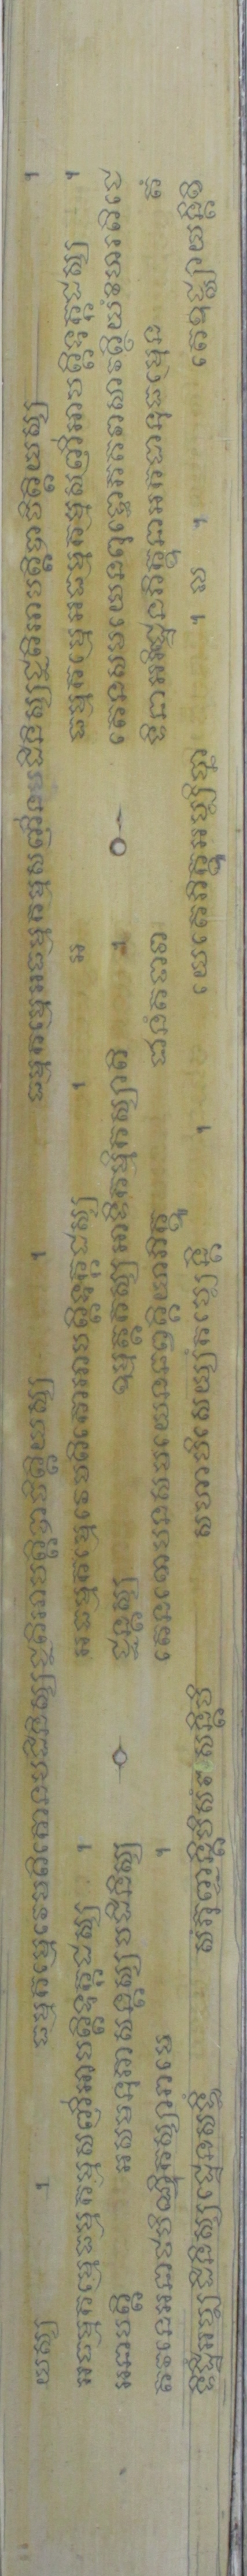 យស្ស ។ ធម្មកម្មេវេមតិកោនបដិនិស្សជ្ជតិអាបត្តិបាចិត្តិយស្ស ។ ធម្មកម្មេអធម្មកម្មសញ្ញីនបដិនិស្សជ្ជតិអាបត្តិបាចិត្តិយស្ស ។
អធម្មកម្មេធម្មកម្មសញ្ញីអាបត្តិទុក្កដស្ស ។ អធម្មកម្មេវេមតិកោអាបត្តិទុក្កដស្ស ។ អ ធម្មកម្មេអធម្មកម្មសញ្ញីអាបត្តិទុក្កដស្ស ។
អនាបត្តិ អសមនុភាសន្តស្សបដិនិស្ស ជ្ជន្តស្ស ឧម្មត្តកស្សអាទិកម្មិកស្សាតិ ។ តេនសមយេនពុទ្ធោភគវាសាវត្ថិយំវិហរតិជេ
តវនេអនាថបិណ្ឌិកស្សារាមេ ។ តេនខោបនសមយេនឆព្វគ្គិយាភិក្ខូ ជានំតថាវា ទិនាអរិដ្ឋេនភិក្ខុនាអកដានុធម្មេន តំ
ទិដ្ឋិំអប្បដិនិស្សដ្ឋេនសទ្ធិំ សំភុញ្ជន្តិបិសំវសន្តិបិ សហាបិសេយ្យំកប្បេន្តិ ។ យេតេភិក្ខូអប្បិច្ឆា ។ ល ។ តេឧជ្ឈាយន្តិខិ